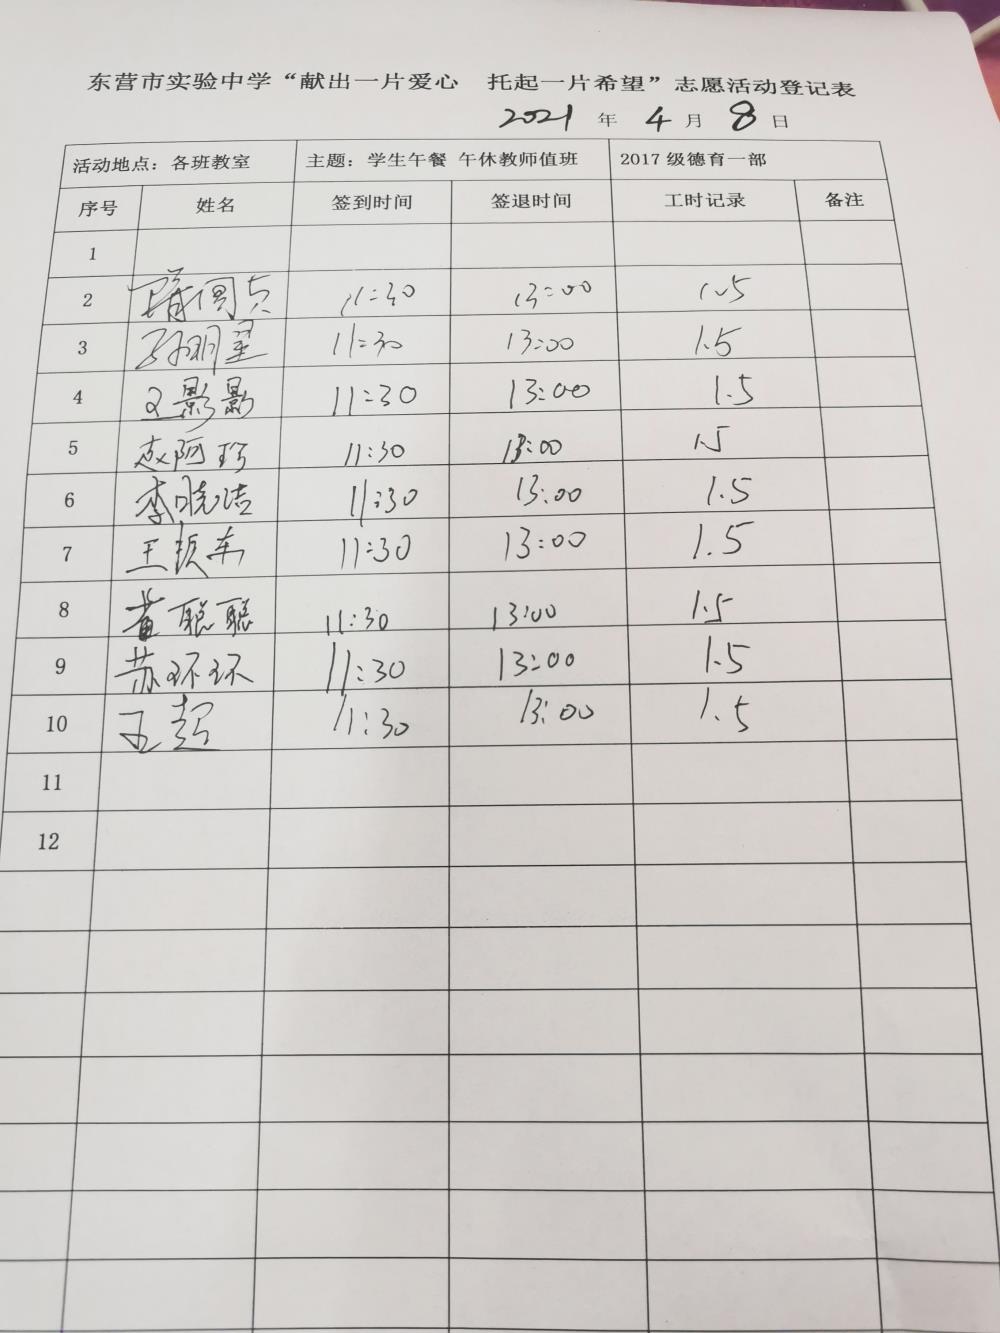 东营市实验中学“献出一片爱心 托起一片希望”志愿活动登记表
2021 年 4 月 8 日
活动地点：各班教室 主题：学生午餐 午休教师值班 2017 级德育一部
序号 姓名 签到时间 签退时间 工时记录 备注
1
2 11:30 13:00 1.5
3 孙明星 11:30 13:00 1.5
4 王影影 11:30 13:00 1.5
5 赵阿珍 11:30 13:00 1.5
6 李晓洁 11:30 13:00 1.5
7 王 11:30 13:00 1.5
8 黄聪聪 11:30 13:00 1.5
9 苏环环 11:30 13:00 1.5
10 王超 11:30 13:00 1.5
11
12